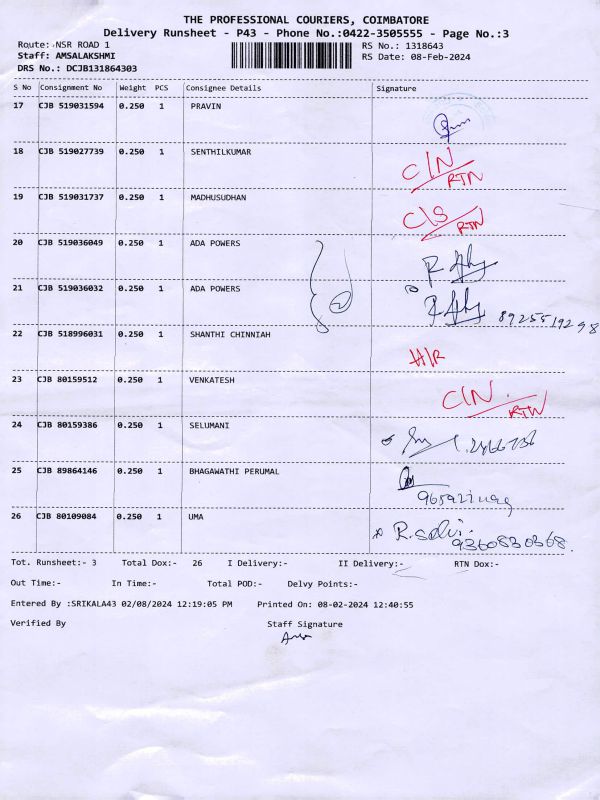 THE PROFESSIONAL COURIERS, COIMBATORE
Delivery Runsheet - P43 - Phone No.:0422-3505555 - Page No.:3
Route: NSR ROAD 1
RS No.: 1318643
Staff: AMSALAKSHMI
RS Date: 08-Feb-2024
DRS No.: DCJB131864303
S No Consignment No Weight PCS Consignee Details Signature
17 CJB 519031594 0.250 1 PRAVIN
18 CJB 519027739 0.250 1 SENTHILKUMAR C/N RTN
19 CJB 519031737 0.250 1 MADHUSUDHAN C/S RTN
20 CJB 519036049 0.250 1 ADA POWERS
21 CJB 519036032 0.250 1 ADA POWERS 8925519298
22 CJB 518996031 0.250 1 SHANTHI CHINNIAH H/R
23 CJB 80159512 0.250 1 VENKATESH C/N. RTN
24 CJB 80159386 0.250 1 SELUMANI
25 CJB 89864146 0.250 1 BHAGAWATHI PERUMAL
26 CJB 80109084 0.250 1 UMA R. Selvi. 9360830368.
Tot. Runsheet:- 3 Total Dox:- 26 I Delivery:- II Delivery:- RTN Dox:-
Out Time:- In Time:- Total POD:- Delvy Points:-
Entered By :SRIKALA43 02/08/2024 12:19:05 PM Printed On: 08-02-2024 12:40:55
Verified By Staff Signature